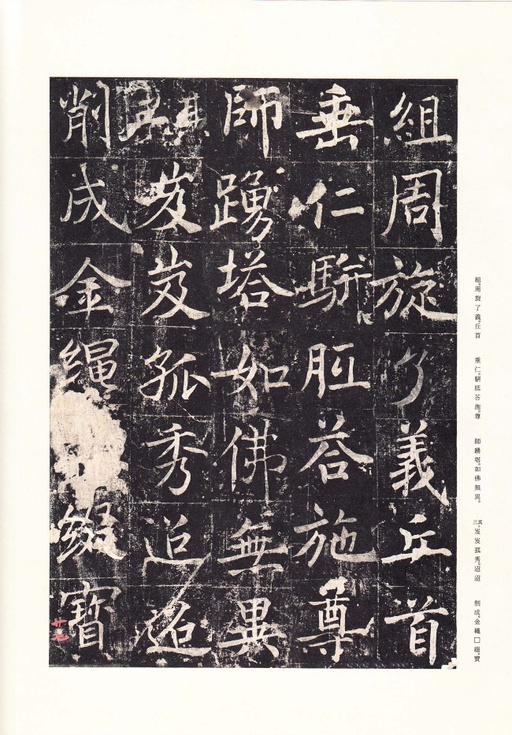 組周旋了義丘首
垂仁騈胝荅施尊
師踴塔如佛無異
其三岌岌孤秀迢迢
削成金繩綴寶
組。周旋了義。丘首
垂仁。騈胝荅施。尊
師踴塔。如佛無異。
其三。岌岌孤秀。迢迢
削成。金繩□綴。寶